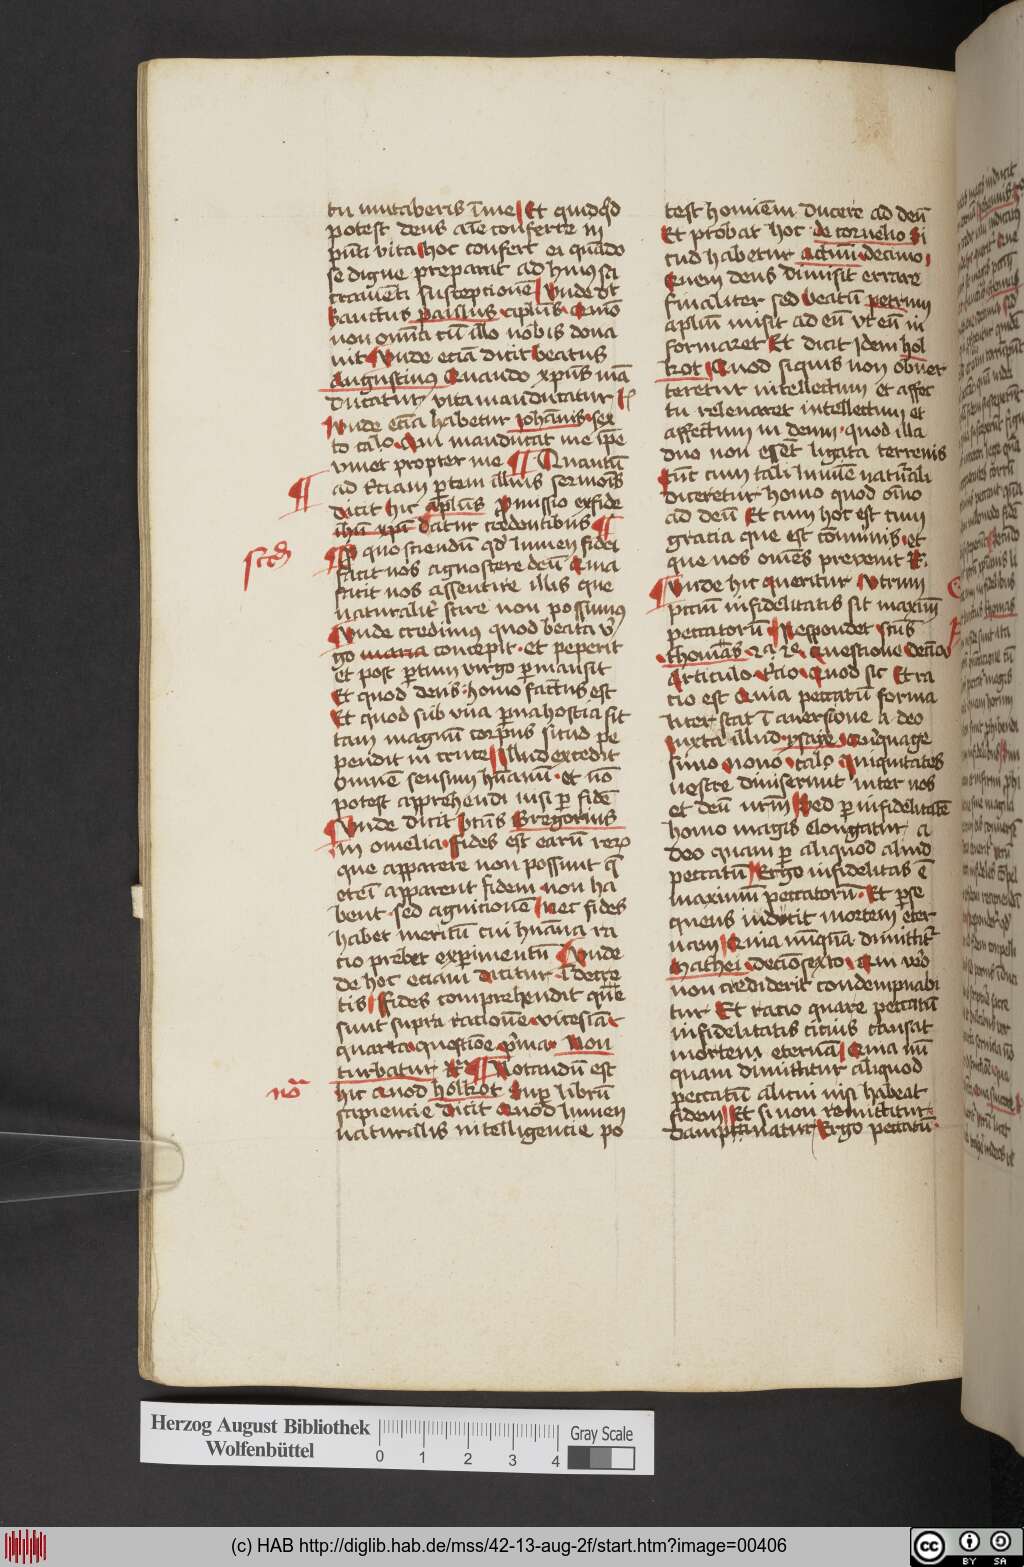 tu mutaberis ī me Et quidqͥd
potest deus aīe conferre in
pn̄ti vita hoc confert ei quādo
se digne preparat ad huiꝰ sa
cramēti susceptionē Vnde dt̄
Sanctus paulus apl̄us Quō
non om̄ia cū illo nobis dona
uit Vnde eciā dicit beatus
Augustinus Quando xp̄us mā
ducatur vita manducatur
Vnde eciā habetur johānis sex
to ca.lo Qui manducat me ip̄e
viuet propter me ¶ Quantū
¶ ad t̄ciam ꝑtem illius sermōis
dicit hic apl̄us ꝓmissio ex fide
ihū xp̄i datur credentibus ¶
scdͫ
Pro quo sciendū qd̓ lumen fidei
facit nos agnoscere deū Quia
facit nos assentire illis que
naturalit̓ scire non possumus
Vnde credimus quod beata vͥ
go maria concepit et peperit
et post ꝑtum virgo ꝑmansit
Et quod deus homo factus est
Et quod sub vna ꝑua hostia sit
tam magnū corpus sicud pe
pendit in cruce Illud excedit
omnē sensum hūanū et nō
potest apprehendi nisi ꝑ fidē
Vnde dicit sctūs Gregorius
in omelia fides est earū rerꝝ
que apparere non possunt q̄
etem̄ apparent fidem non ha
bent sed agnicionē nec fides
habet meritū cui hūana ra
cio prebet exꝑimentū Vnde
de hoc eciam dicitur ī decre
tis Fides comprehendit que
sunt supra racionē vicesiā
quarta questiōe pͥma Non
turbatur R̄ ¶ Notandū est
noͣ
hic quod holkot sup̱ librū
sapiencie dicit Quod lumen
naturalis intelligencie po
test homiēm ducere ad deū
Et probat hoc de cornelio si
cud habetur actuū decimo
Quem deus dimisit errare
finaliter sed beatū petrum
aplūm misit ad eū vt eū in
formaret Et dicit idem hol
kot Quod si quis non obuer
teretur intellectum et affec
tu releuaret intellectum et
affectum in deum quod illa
duo non essēt ligata terrenis
Tūc cum tali lumīe naturali
diceretur homo quod om̄o
ad deū Et cum hoc est cum
gracia que est com̄unis et
que nos om̄es preuenit R̄
Vnde hic queritur Vtrum
pctm̄ infidelitatis sit maximū
peccatorū Respondet sctūs
thomas 2a 2e Questione decīa
Articulo t̓cio Quod sic Et ra
cio est Quia peccatū forma
liter stat ī auersione a deo
iuxta illud ysaie quīquage
simo nono ca.lo Iniquitates
vestre diuiserunt inter nos
et deū nrm̄ Sed ꝑ infidelitatē
homo magis elongatur a
deo quam ꝑ aliquod aliud
peccatū Ergo infidelitas ē
maximū peccatorū Et ꝑ se
quens inducit mortem eter
nam Quia nūquā dimittit̓
Mathei decīosexto Qui v̓o
non crediderit condempnabi
tur Et racio quare peccatū
infidelitatis cicius causat
mortem eternā Quia nū
quam dimittitur aliquod
peccatū alicui nisi habeat
fidem Et si non remittitur
dampnatur Ergo peccatū
Herzog August Bibliothek
Wolfenbüttel
0 1 2 3 4
Gray Scale
(c) HAB http://diglib.hab.de/mss/42-13-aug-2f/start.htm?image=00406
cc BY SA